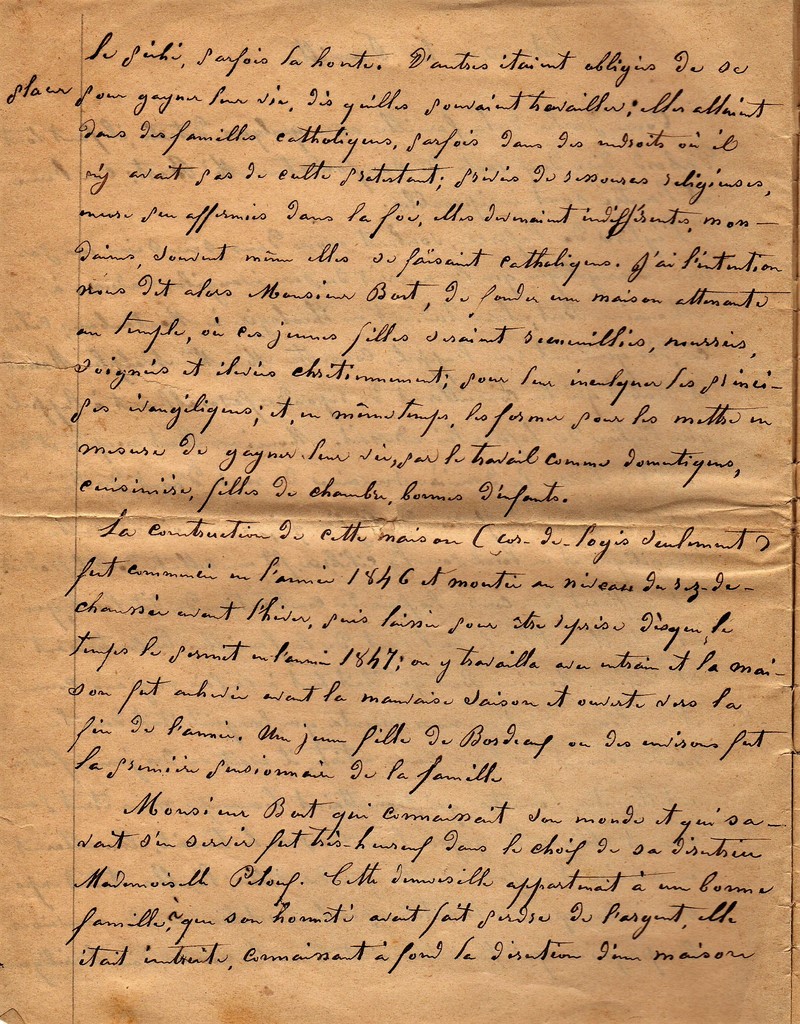 le péché, parfois la honte. D'autres étaient obligées de se
placer
pour gagner leur vie, dès qu'elles pouvaient travailler; elles allaient
dans des familles catholiques, parfois dans des endroits où il
n'y avait pas de culte protestant; privées de ressources religieuses,
encore peu affermies dans la foi, elles devenaient indifférentes, mon-
daines, souvent même elles se faisaient catholiques. J'ai l'intention
nous dit alors Monsieur Bost, de fonder une maison attenante
au temple, où ces jeunes filles seraient recueuillies, nourries,
soignées et élevées chrétiennement; pour leur inculquer les princi-
pes évangéliques; et, en même temps, les former pour les mettre en
mesure de gagner leur vie, par le travail comme domestiques,
cuisinière, filles de chambre, bonnes d'enfants.
La construction de cette maison (cor-de-logis seulement)
fut commencée en l'année 1846 et montée au niveau du rez-de-
chaussée avant l'hiver, puis laissée pour être reprise dès que le
temps le permet en l'année 1847; on y travailla avec entrain et la mai-
son fut achevée avant la mauvaise saison et ouverte vers la
fin de l'année. Une jeune fille de Bordeaux ou des environs fut
la première pensionnaire de la famille
Monsieur Bost qui connaissait son monde et qui sa-
vait s'en servir fut très-heureux dans le choix de sa directrice
Mademoiselle Peloux. Cette demoiselle appartenait à une bonne
famille, que son honnêteté avait fait perdre de l'argent, elle
était instruite, connaissant à fond la direction d'une maison